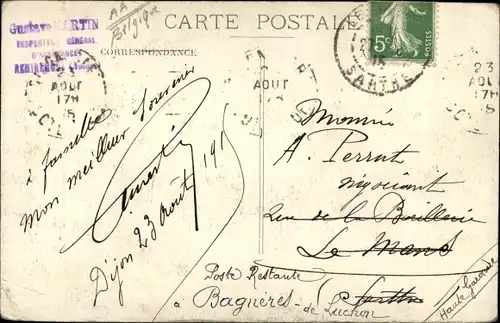 AA
Belgique
CARTE POSTALE
Gustave MARTIN
INSPECTEUR GÉNÉRAL
D'ASSURANCES
REMIREMONT (Vosges)
CORRESPONDANCE
5c
POSTES
SARTHE
23
AOUT
17H
15
AOUT
23
17H
15
à famille
mon meilleur souvenir
Dijon 23 Août 191
Monsieur
A. Perrut
négociant
Rue de la Bouillerie
Le Mans
Sarthe
Poste Restante
à Bagnères-de Luchon
Haute Garonne